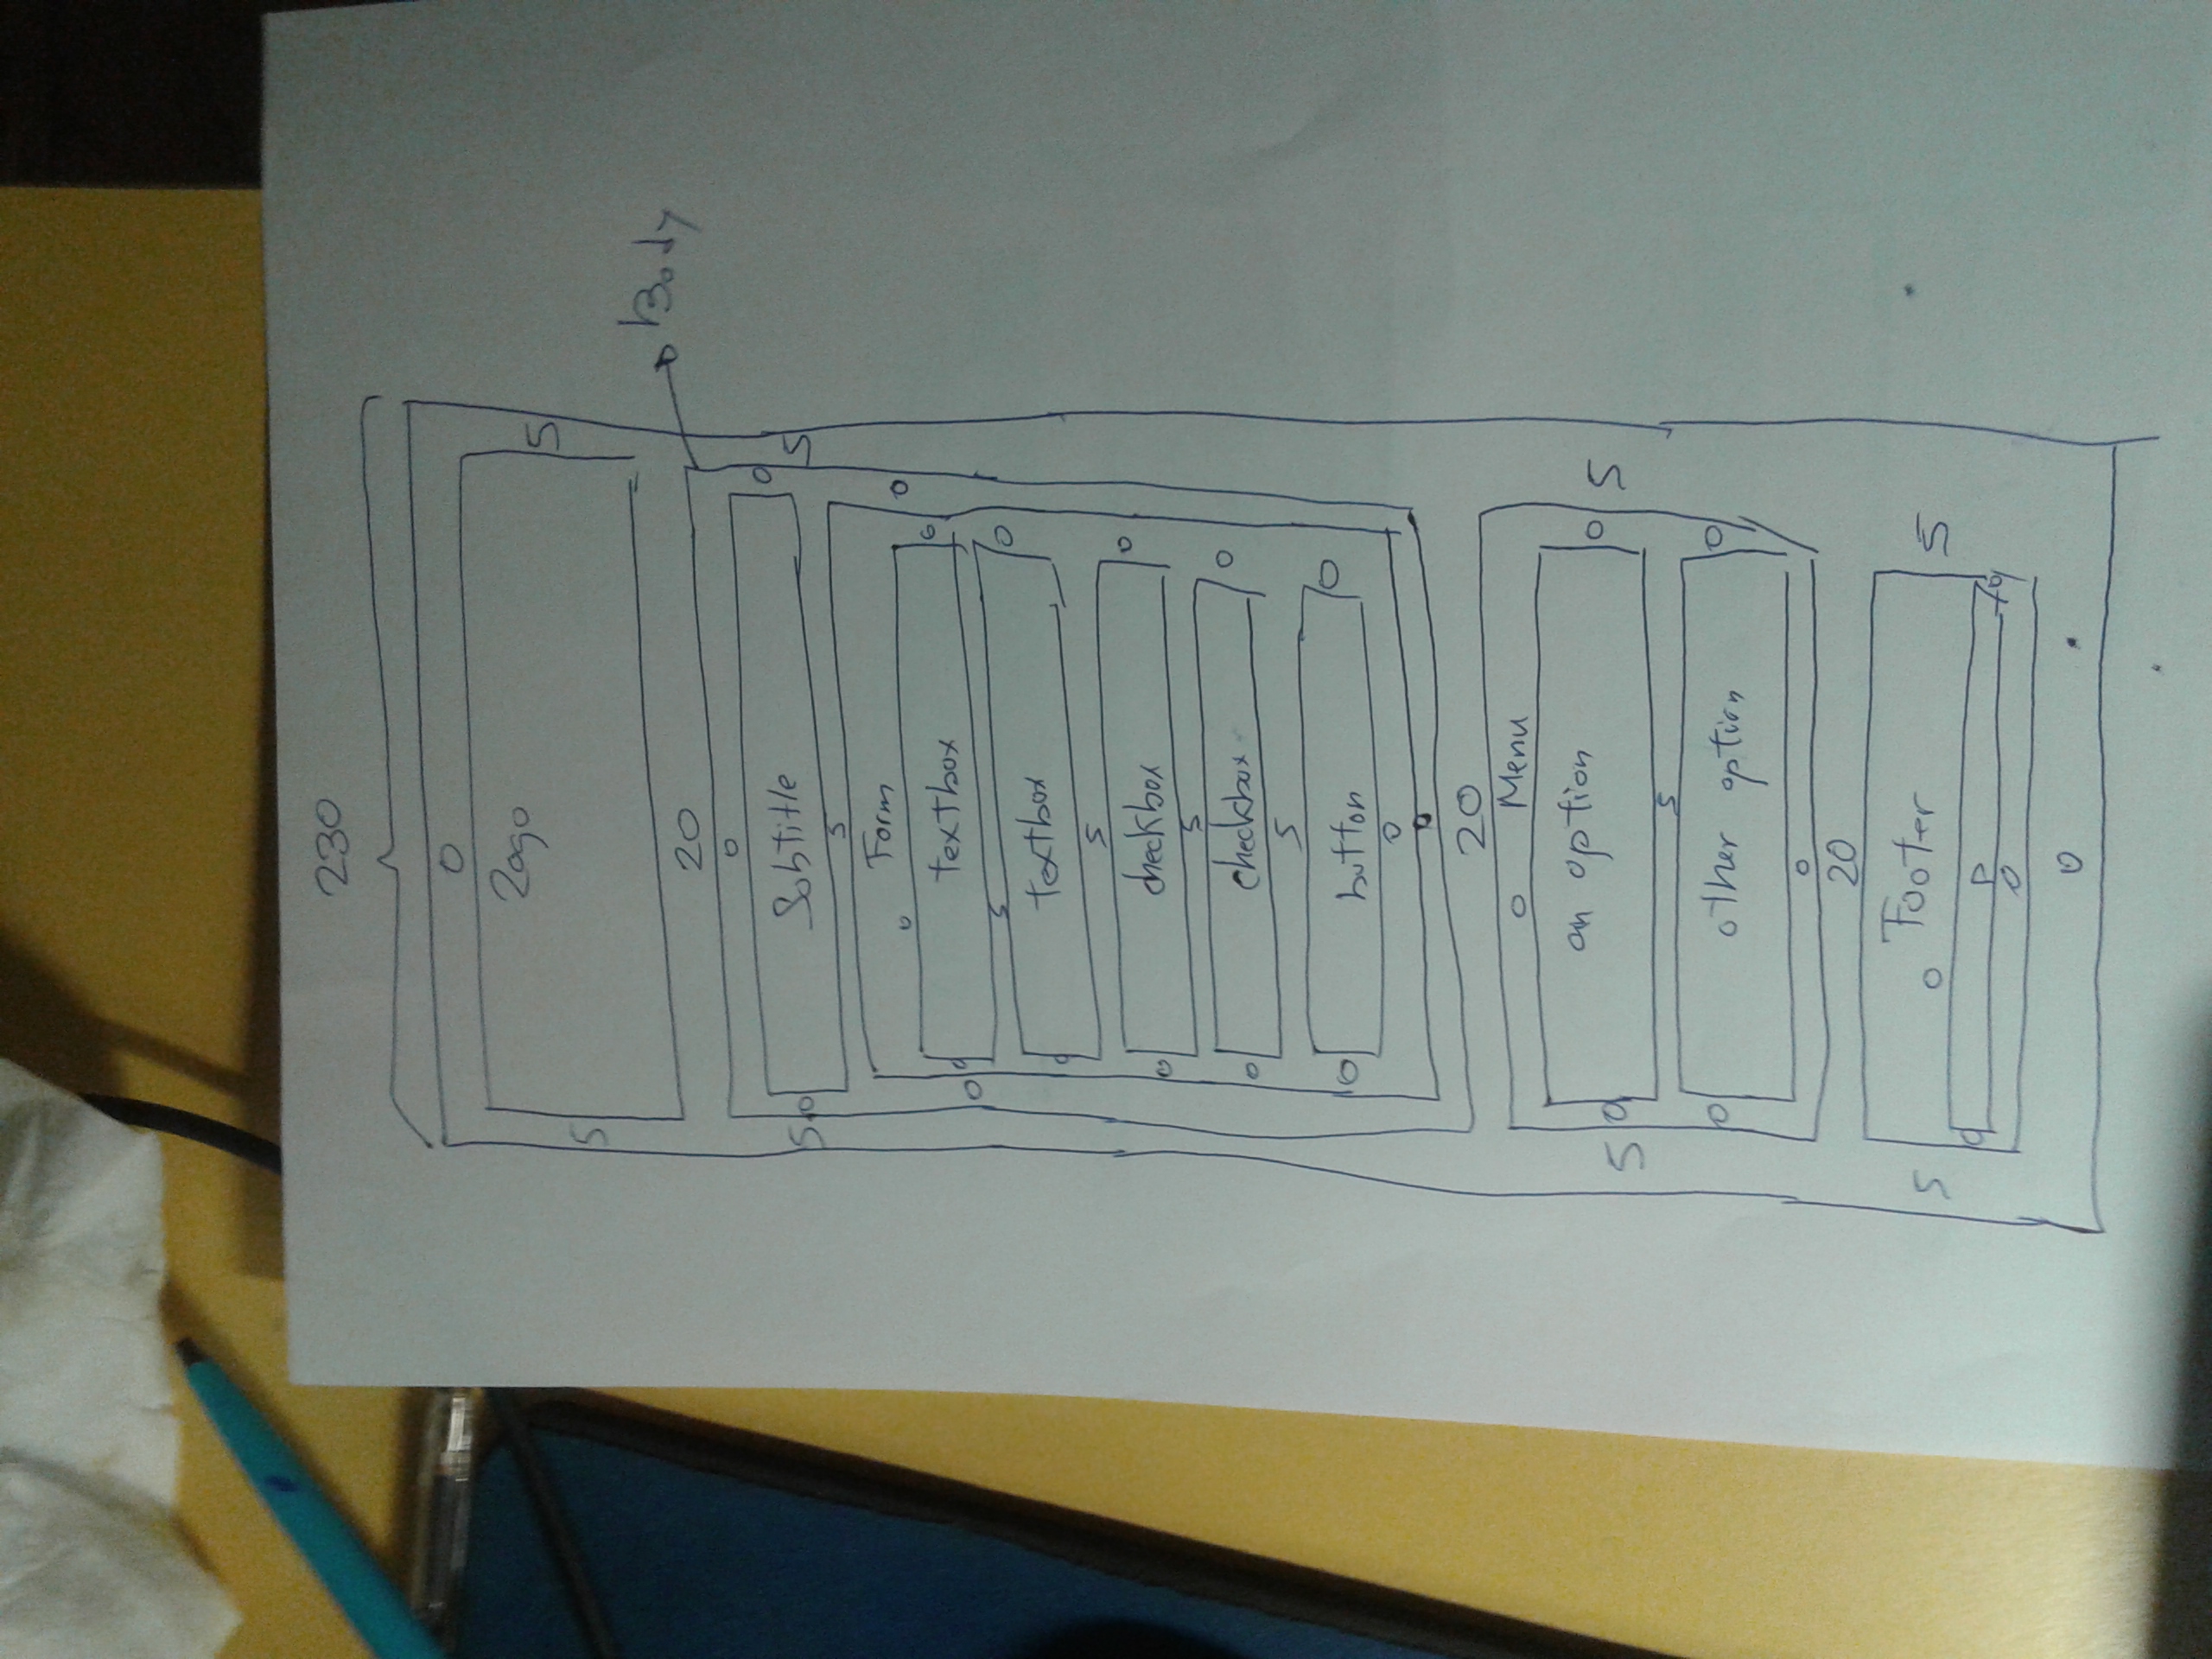 230
0
Logo
5 5
20
Body
0
Subtitle
0
5 0 5
5
Form
0
0
textbox
0
0 0
5
0
textbox
0
5
0
checkbox
0
5
0
checkbox
0
5
0
button
0
0
0
20
0 Menu
an option
0
5 0 5
5
0 other option 0
0
20
Footer
0
5 5
0 P 0
0
0